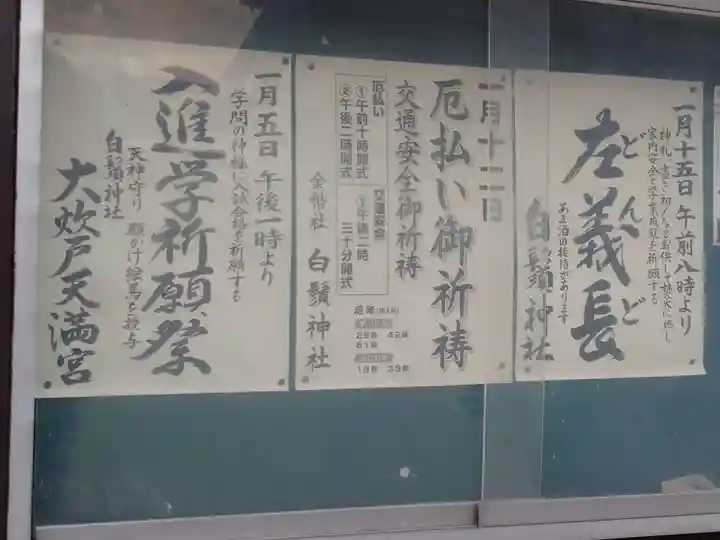 一月十五日 午前八時より
神札、書き初めなどお供し焚火に燃し
家内安全と学業成就を祈願する
左義長
どんど
あま酒の接待があります
白鬚神社
一月十二日
厄払い御祈祷
交通安全御祈祷
厄払い
①午前十時開式
②午後二時開式
交通安全
午後二時
三十分開式
金幣社 白鬚神社
厄年
25歳 42歳
61歳
19歳 33歳
一月五日 午後一時より
学問の神様に入試合格を祈願する
入進学祈願祭
天神守り 願かけ絵馬を授与
白鬚神社
大炊戸天満宮